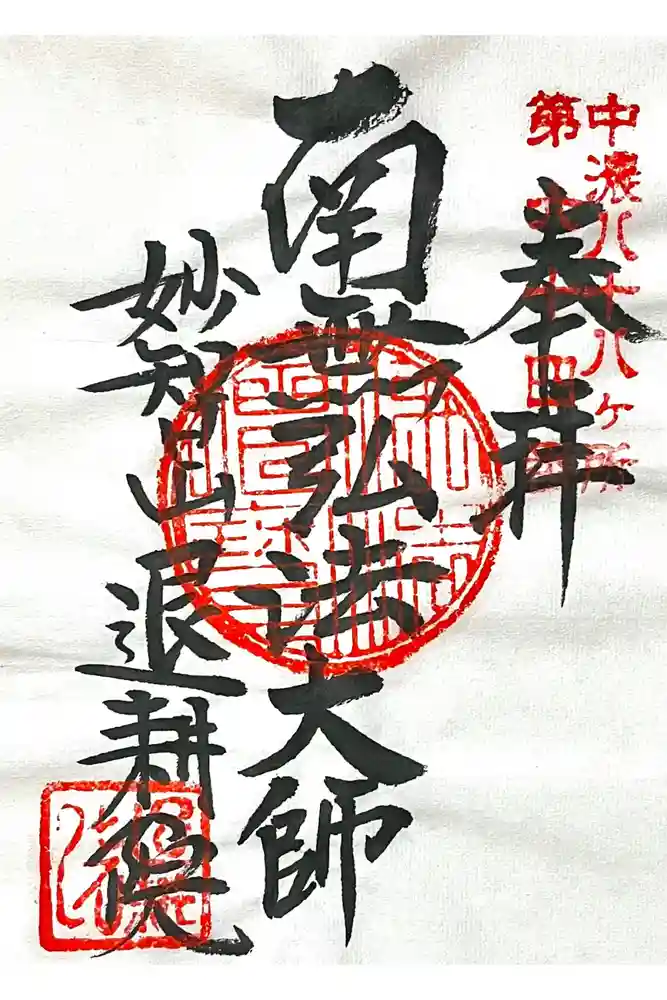 中濃八十八ヶ所
第
奉拝
南無弘法大師
妙智山退耕庵